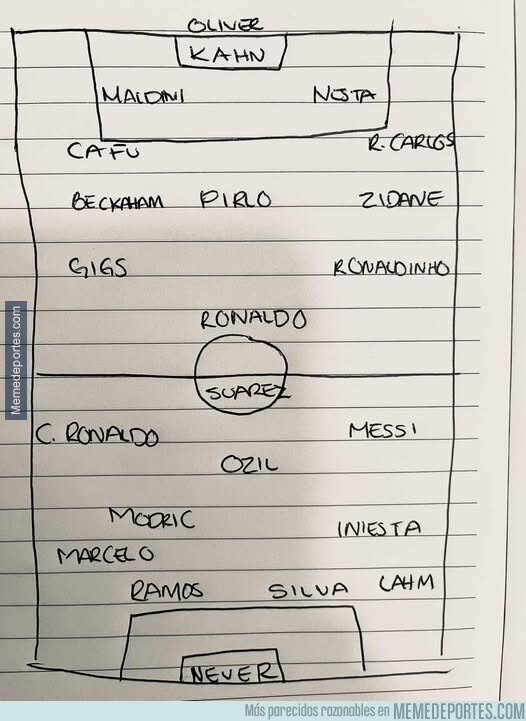 OLIVER
KAHN
MALDINI NESTA
CAFU R. CARLOS
BECKHAM PIRLO ZIDANE
GIGS RONALDINHO
RONALDO
SUAREZ
C. RONALDO MESSI
OZIL
MODRIC INIESTA
MARCELO
RAMOS SILVA LAHM
NEVER
Memedeportes.com
Más parecidos razonables en MEMEDEPORTES.COM